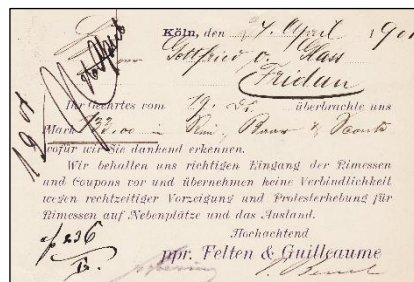 Köln, den 24. April 190
Gottfried v. Glass
Fridau
Ihr Geehrtes vom 19. ds. überbrachte uns
Mark in
wofür wir Sie dankend erkennen.
Wir behalten uns richtigen Eingang der Rimessen
und Coupons vor und übernehmen keine Verbindlichkeit
wegen rechtzeitiger Vorzeigung und Protesterhebung für
Rimessen auf Nebenplätze und das Ausland.
Hochachtend
236
ppr. Felten & Guilleaume